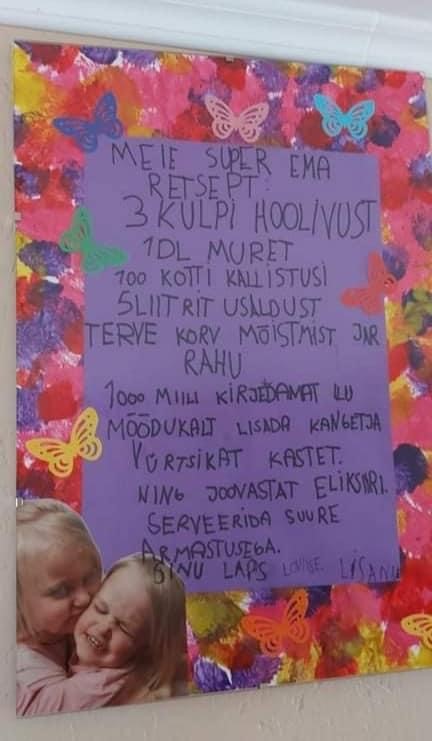 MEIE SUPER EMA
RETSEPT:
3 KULPI HOOLIVUST
1DL MURET
100 KOTTI KALLISTUSI
5LIITRIT USALDUST
TERVE KORV MÕISTMIST JAR
RAHU
1000 MIILI KIRJEDAMAT ILU
MÕÕDUKALT LISADA KANGETJA
VÜRTSIKAT KASTET.
NING JOOVASTAT ELIKSIIRI.
SERVEERIDA SUURE
ARMASTUSEGA.
SINU LAPS LOVIISE. LISANN